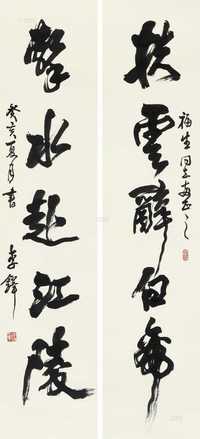 扶雲辭白帝
福生同志正之
擊水赴江陵
癸亥夏月書 李鐸